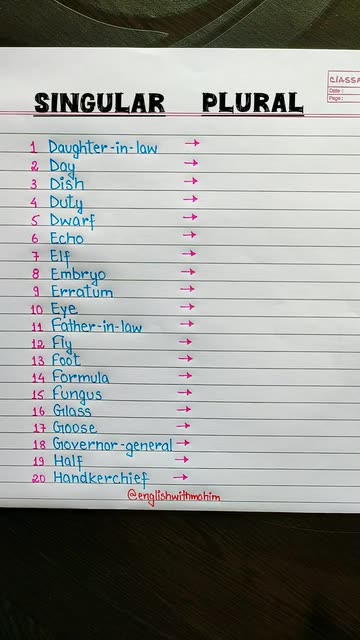 CLASSM
Date :
Page :
SINGULAR PLURAL
1 Daughter-in-law →
2 Day →
3 Dish →
4 Duty →
5 Dwarf →
6 Echo →
7 Elf →
8 Embryo →
9 Erratum →
10 Eye →
11 Father-in-law →
12 Fly →
13 Foot →
14 Formula →
15 Fungus →
16 Glass →
17 Goose →
18 Governor-general →
19 Half →
20 Handkerchief →
@englishwithmahim